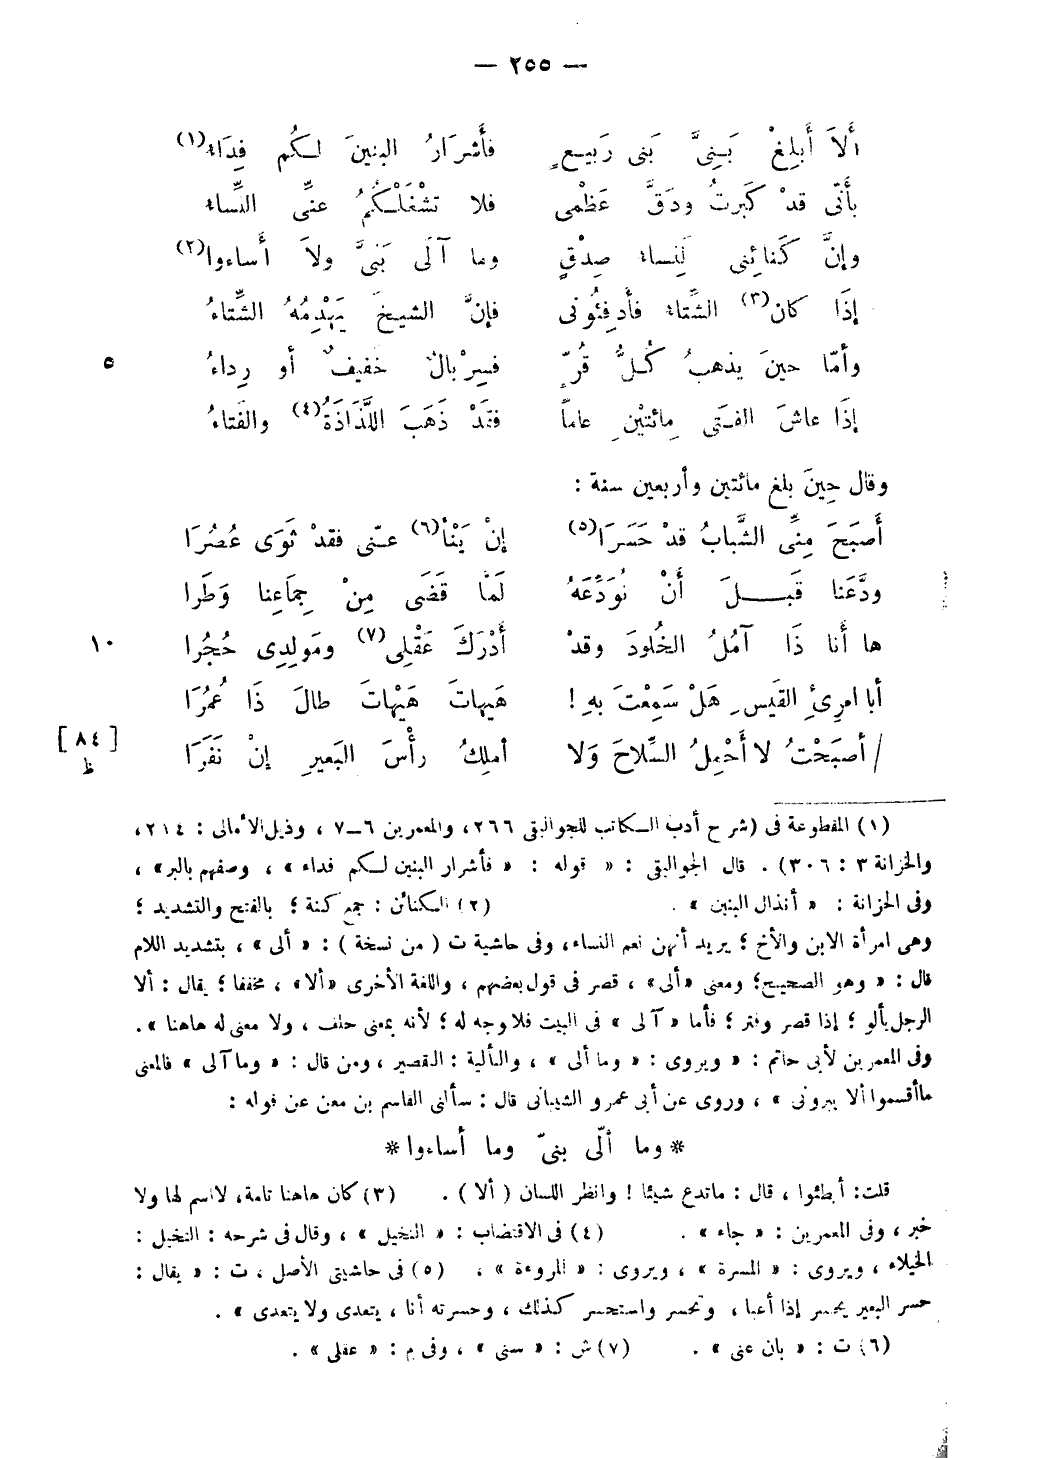 — ٢٥٥ —
أَلاَ أَبلِغْ بَنِيَّ بَنِى رَبيعٍ فأَشرَارُ البنينَ لكُم فِدَاء(١)
بأَنّى قدْ كَبرتُ ودَقَّ عَظْمى فلا تشْغَلْكُمُ عنِّى النِّساء
وإنَّ كَنائِنِى لَنِساء صِدْقٍ وما آلَى بَنىَّ ولاَ أَساءوا(٢)
إذَا كان(٣) الشِّتاء فأَدفِئُونى فإنَّ الشيخَ يَهْدِمُهُ الشِّتاءُ
٥ وأمّا حينَ يذهبُ كُلُّ قُرٍّ فسِرْبالٌ خَفيفٌ أو رِداءُ
إذَا عاشَ الفتَى مِائتيْنِ عاماً فقَدْ ذَهَبَ اللَّذَاذَةُ(٤) والفَتاءُ
وقال حِينَ بلغ مائتين وأربعين سنة :
أَصبَحَ مِنِّى الشَّبابُ قدْ حَسَرَا(٥) إنْ يَنْأ(٦) عنّى فقدْ ثَوَى عُصُرَا
ودَّعَنا قَبلَ أَنْ نُوَدِّعَهُ لَمّا قَضَى مِنْ جِمَاعِنا وَطَرا
١٠ ها أنا ذَا آمُلُ الخُلودَ وقدْ أَدْرَكَ عَقْلِى(٧) ومَولِدِى حُجُرا
أبا امرِئِ القَيسِ هَلْ سَمِعْتَ بهِ ! هَيهاتَ هَيْهاتَ طالَ ذَا عُمُرَا
[ ٨٤ ظ ] / أصبَحْتُ لا أَحْمِلُ السِّلاحَ وَلا أملِكُ رأْسَ البَعيرِ إنْ نَفَرَا
(١) المقطوعة فى (شرح أدب الكاتب للجواليقى ٢٦٦، والمعمرين ٦-٧ ، وذيل الأمالى : ٢١٤،
والخزانة ٣ : ٣٠٦) . قال الجواليقى : « قوله : « فأشرار البنين لكم فداء » ، وصفهم بالبر» ،
وفى الخزانة : « أنذال البنين » . (٢) الكنائن : جمع كنة ؛ بالفتح والتشديد ؛
وهى امرأة الابن والأخ ؛ يريد أنهن نعم النساء، وفى حاشية ت ( من نسخة ) : « ألى » ، بتشديد اللام
قال : « وهو الصحيح؛ ومعنى «ألى» ، قصر فى قول بعضهم ، واللغة الأخرى «ألا» ، مخففا ؛ يقال : ألا
الرجل يألو ؛ إذا قصر وفتر ؛ فأما « آلى » فى البيت فلا وجه له ؛ لأنه بمعنى حلف ، ولا معنى له هاهنا ».
وفى المعمرين لأبى حاتم : « ويروى : « وما ألى » ، والتألية : التقصير ، ومن قال : « وما آلى » فالمعنى
ما أقسموا ألا يبرونى » ، وروى عن أبى عمرو الشيبانى قال : سألنى القاسم بن معن عن قوله :
* وما ألّى بنىّ وما أساءوا *
قلت: أبطئوا ، قال : ماتدع شيئا ! وانظر اللسان ( ألا ) . (٣) كان هاهنا تامة، لا اسم لها ولا
خبر ، وفى المعمرين : « جاء » . (٤) فى الاقتضاب : « التخيل » ، وقال فى شرحه : التخيل :
الخيلاء ، ويروى : « المسرة » ، ويروى : « المروءة » ، (٥) فى حاشيتى الأصل ، ت : « يقال :
حسر البعير يحسر إذا أعيا ، وتحسر واستحسر كذلك ، وحسرته أنا ، يتعدى ولا يتعدى » .
(٦) ت : « بان عنى » . (٧) ش : « سنى » ، وفى م : « عقلى » .